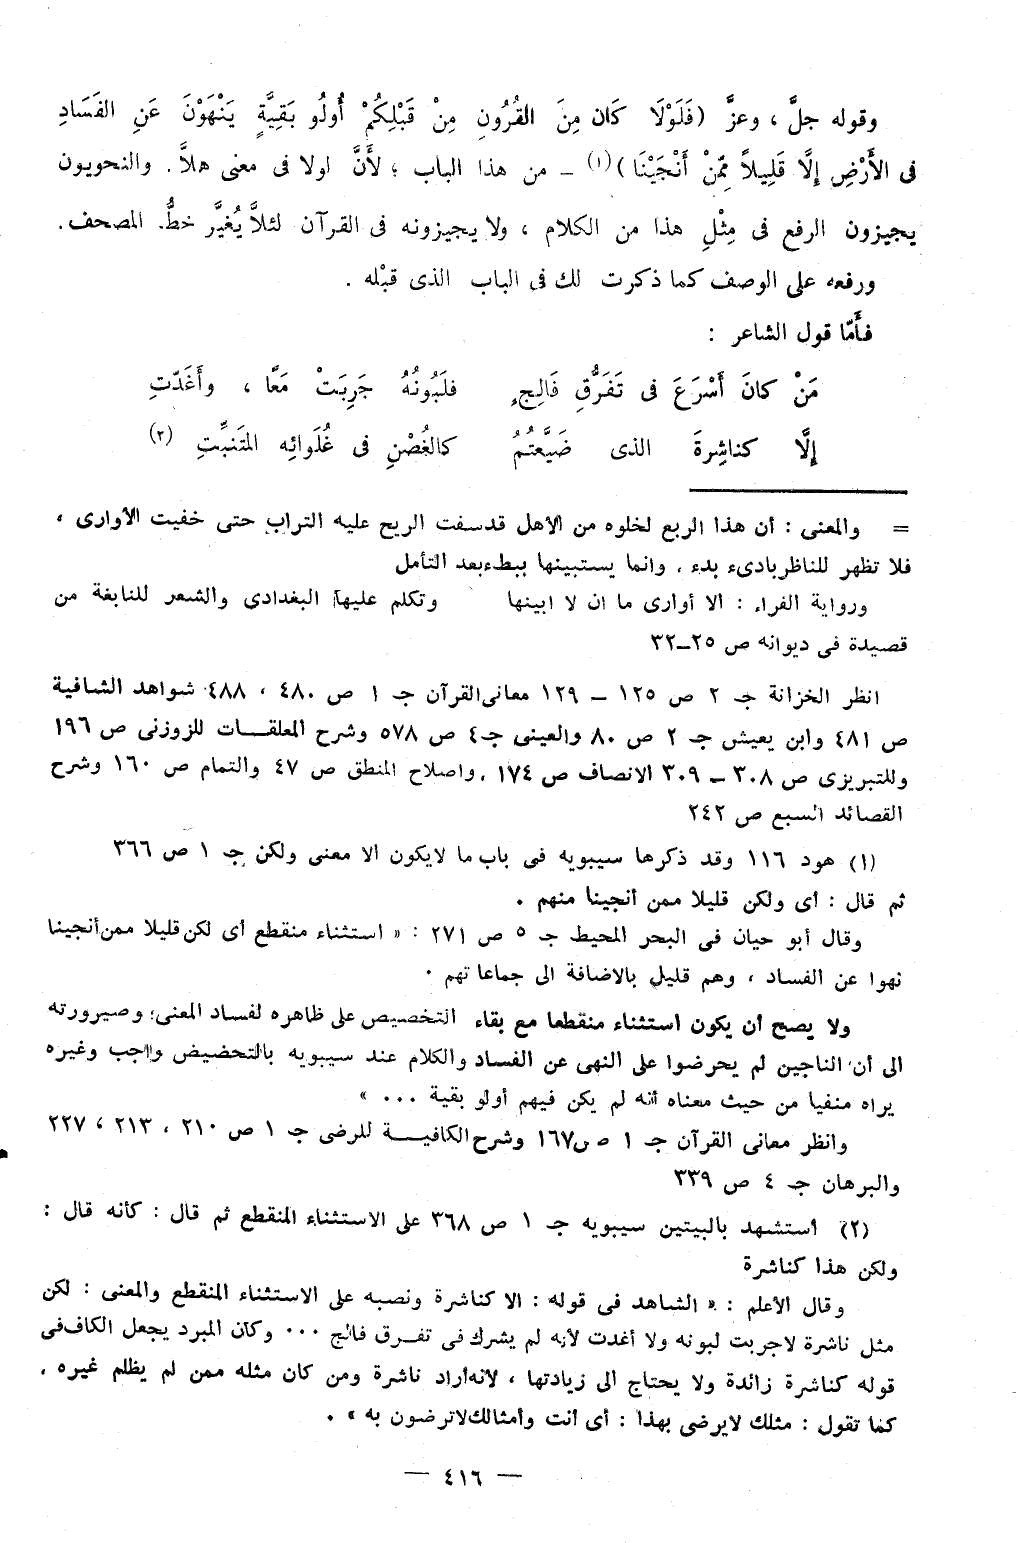 وقوله جلَّ ، وعزَّ (فَلَوْلَا كَان مِنَ القُرُونِ مِنْ قَبْلِكُمْ أُولُو بَقِيَّةٍ يَنْهَوْنَ عَنِ الفَسَادِ
فى الأَرْضِ إلَّا قَلِيلاً مِمَّنْ أَنْجَيْنَا)(١) – من هذا الباب ؛ لأَنَّ لولا فى معنى هلاَّ . والنحويون
يجيزون الرفع فى مِثْلِ هذا من الكلام ، ولا يجيزونه فى القرآن لئلاَّ يُغيَّر خطُّ المصحف .
ورفعه على الوصف كما ذكرت لك فى الباب الذى قبْله .
فأَمّا قول الشاعر :
مَنْ كانَ أَسْرَعَ فى تَفَرُّقِ فَالِجٍ فلَبُونُهُ جَرِبَتْ مَعًا ، وأَغَدّتِ
إلَّا كناشِرةَ الذى ضَيَّعتُمُ كالغُصْنِ فى غُلَوائِه المتَنبِّتِ (٢)
= والمعنى : أن هذا الربع لخلوه من الأهل قدسفت الريح عليه التراب حتى خفيت الأوارى ،
فلا تظهر للناظر بادىء بدء ، وانما يستبينها ببطء بعد التأمل
ورواية الفراء : الا أوارى ما ان لا ابينها وتكلم عليها البغدادى والشعر للنابغة من
قصيدة فى ديوانه ص ٢٥–٣٢
انظر الخزانة جـ ٢ ص ١٢٥ – ١٢٩ معانى القرآن جـ ١ ص ٤٨٠ ، ٤٨٨ شواهد الشافية
ص ٤٨١ وابن يعيش جـ ٢ ص ٨٠ والعينى جـ٤ ص ٥٧٨ وشرح المعلقـات للزوزنى ص ١٩٦
وللتبريزى ص ٣٠٨ – ٣٠٩ الانصاف ص ١٧٤ ، واصلاح المنطق ص ٤٧ والتمام ص ١٦٠ وشرح
القصائد السبع ص ٢٤٢
(١) هود ١١٦ وقد ذكرها سيبويه فى باب ما لايكون الا معنى ولكن جـ ١ ص ٣٦٦
ثم قال : أى ولكن قليلا ممن أنجينا منهم .
وقال أبو حيان فى البحر المحيط جـ ٥ ص ٢٧١ : « استثناء منقطع أى لكن قليلا ممن أنجينا
نهوا عن الفساد ، وهم قليل بالاضافة الى جماعاتهم .
ولا يصح أن يكون استثناء منقطعا مع بقاء التخصيص على ظاهره لفساد المعنى ؛ وصيرورته
الى أن الناجين لم يحرضوا على النهى عن الفساد والكلام عند سيبويه بالتحضيض واجب وغيره
يراه منفيا من حيث معناه أنه لم يكن فيهم أولو بقية ... »
وانظر معانى القرآن جـ ١ ص١٦٧ وشرح الكافيــة للرضى جـ ١ ص ٢١٠ ، ٢١٣ ، ٢٢٧
والبرهان جـ ٤ ص ٣٣٩
(٢) استشهد بالبيتين سيبويه جـ ١ ص ٣٦٨ على الاستثناء المنقطع ثم قال : كأنه قال :
ولكن هذا كناشرة
وقال الأعلم : « الشاهد فى قوله : الا كناشرة ونصبه على الاستثناء المنقطع والمعنى : لكن
مثل ناشرة لاجربت لبونه ولا أغدت لأنه لم يشرك فى تفـرق فالج ... وكان المبرد يجعل الكاف فى
قوله كناشرة زائدة ولا يحتاج الى زيادتها ، لأنه أراد ناشرة ومن كان مثله ممن لم يظلم غيره ،
كما تقول : مثلك لايرضى بهذا : أى أنت وأمثالك لاترضون به » .
— ٤١٦ —